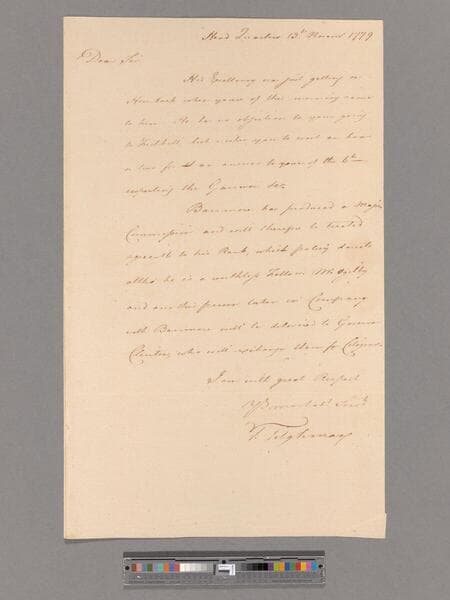 Head Quarters 13th Novemr 1779
Dear Sir
His Excellency was just getting on
Horseback when yours of this morning came
to hand. He has no objection to your going
to Fishkill but wishes you to wait an hour
or two for an answer to yours of the 6th
respecting the Garrison &c.
Barrimore has produced a Majors
Commission and will therefore be treated
agreeable to his Rank, which policy dictates
altho he is a worthless Fellow. Mr
and another person taken in Company
with Barrimore will be delivered to Governor
Clinton, who will exchange them for Citizens.
I am with great Respect
Yr most obt Servt
T. Tilghman